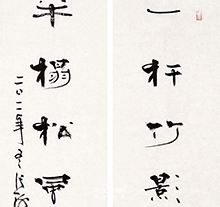 一轩竹影
半榻松風
二〇一二年